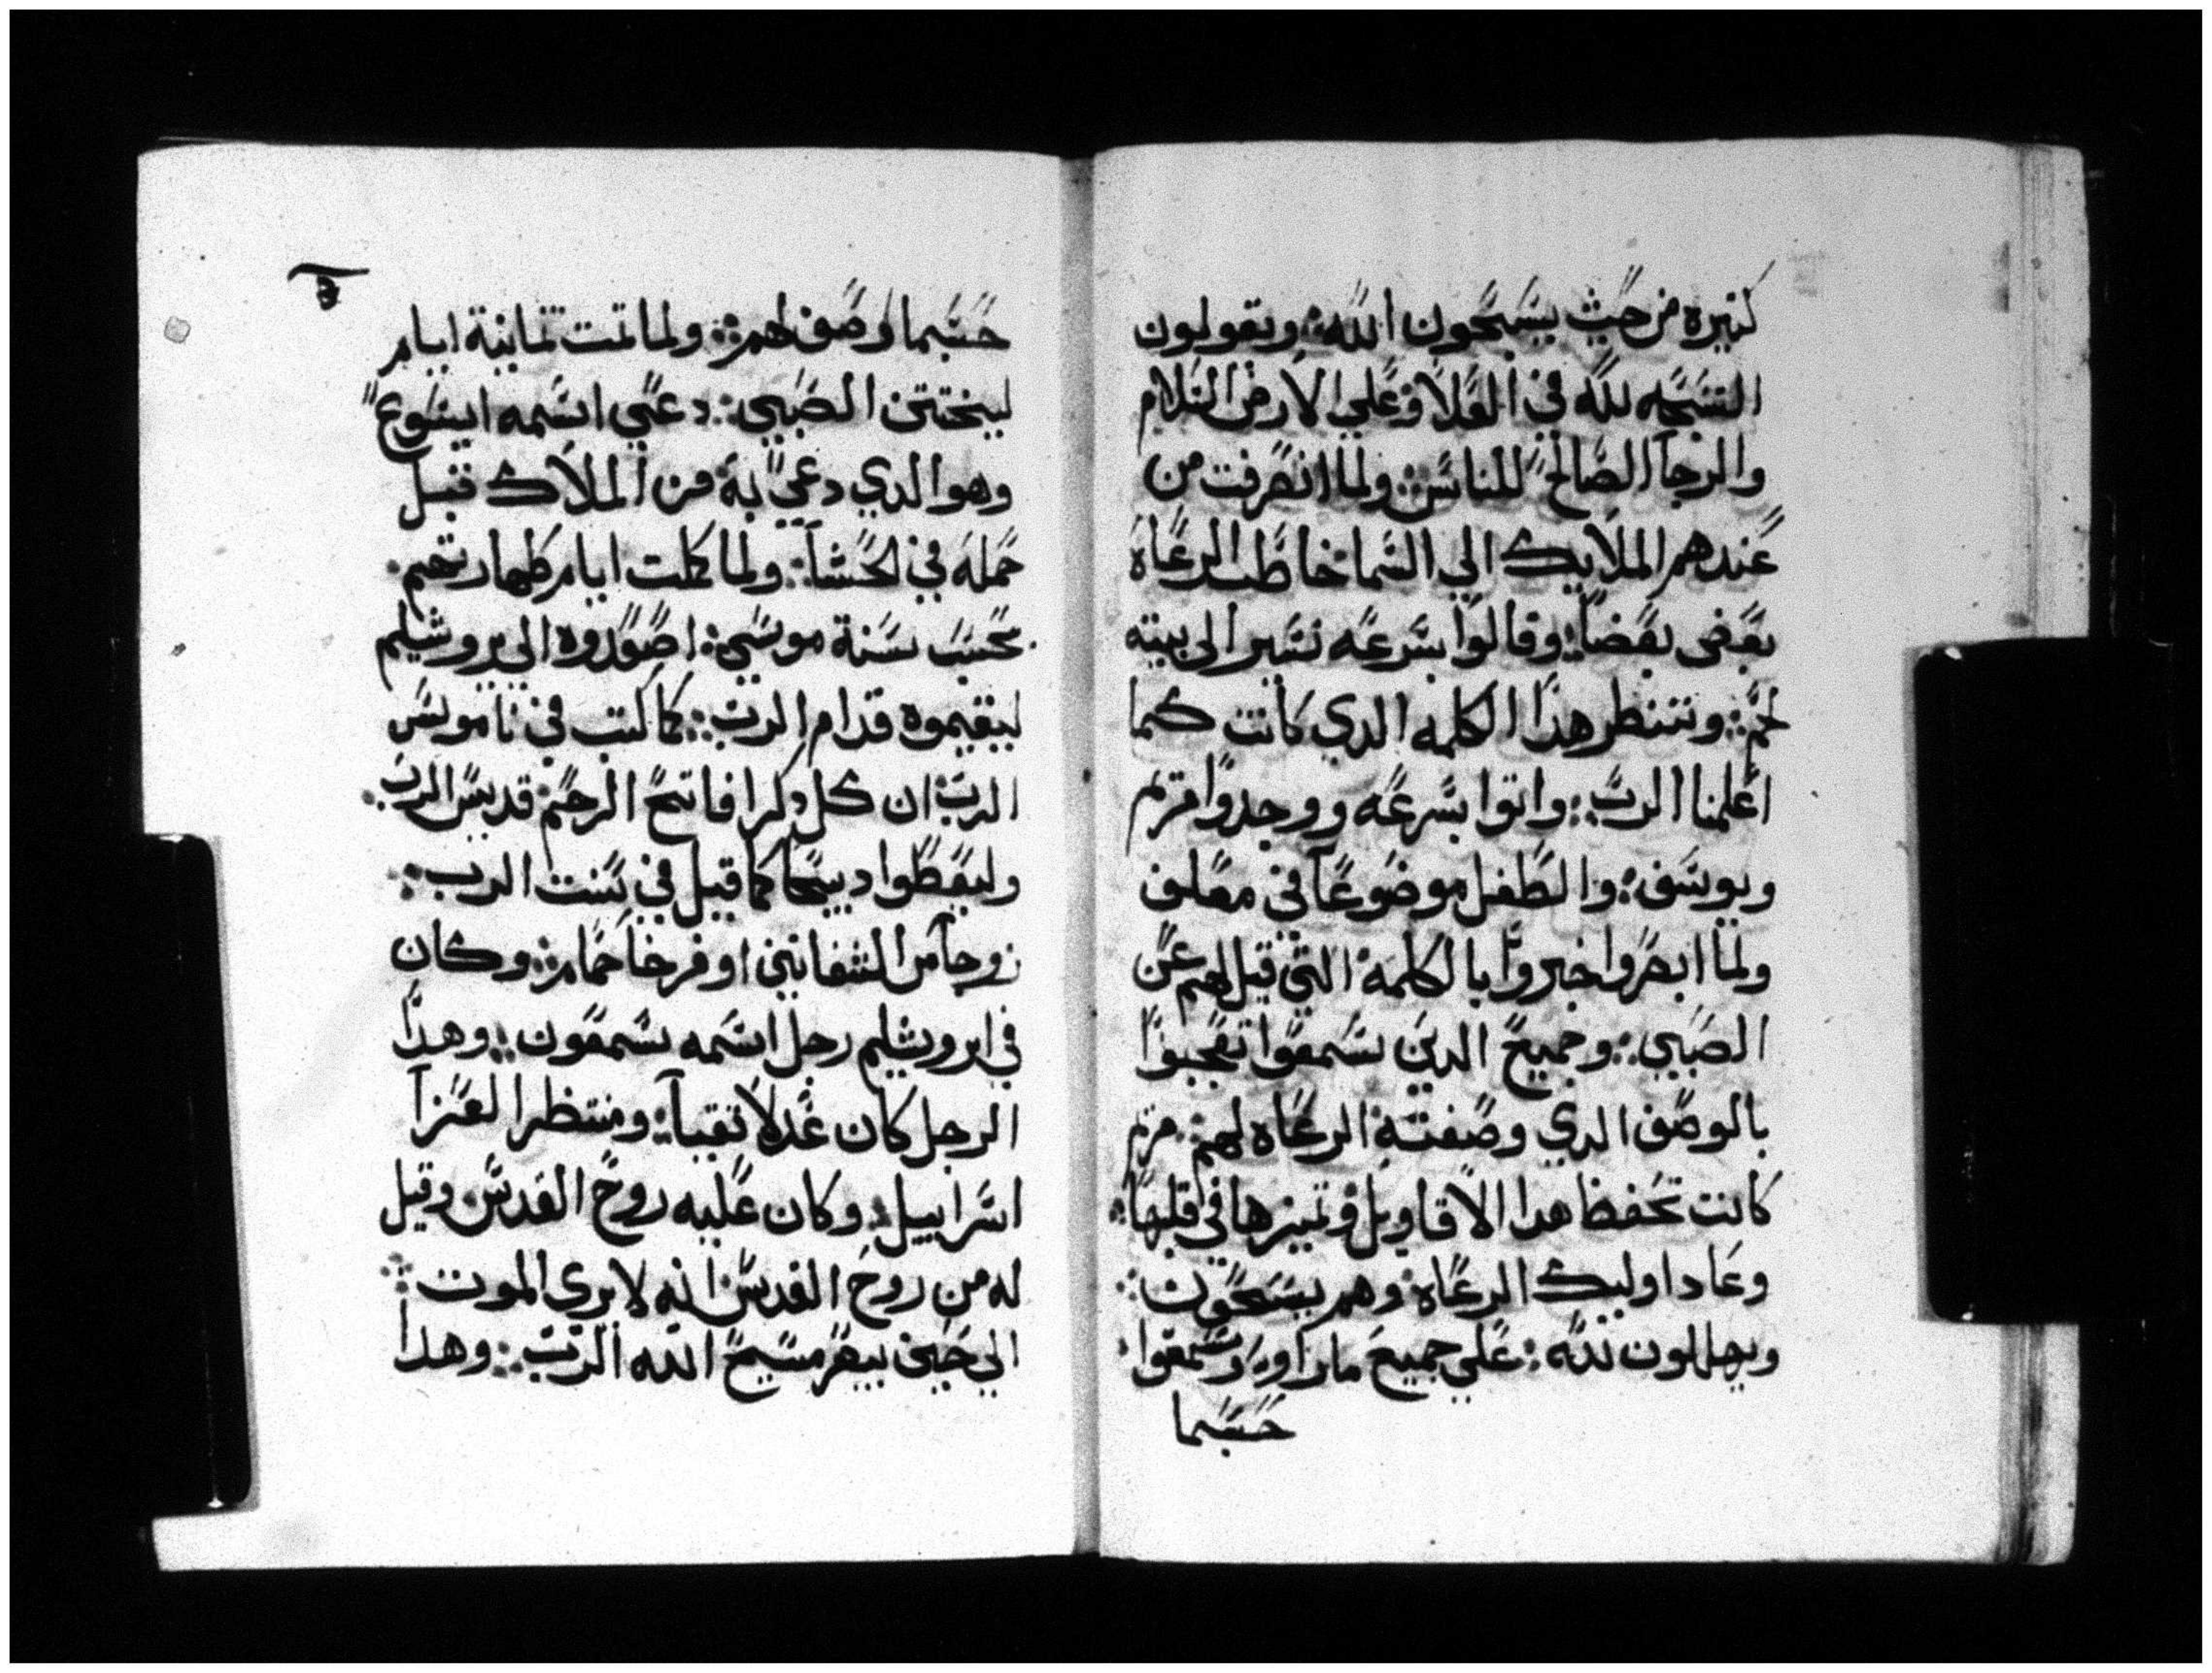 كتيره من حيث يسبحون الله ويقولون
التسبحه لله في العلا وعلي الارض السلام
والرجا الصالح للناس ولما انصرفت من
عندهم الملايك الي السما خاطب الرعاه
بعضي بعضا وقالوا بسرعه نسير الي بيته
لحم وننتظر هدا الكلمه الدي كانت كما
اعلمنا الرب واتوا بسرعه ووجدوا مريم
ويوسف والطفل موضوعا في معلف
ولما ابصروا خبروا بالكلمه التي قيل لهم عن
الصبي وجميع الدين سمعوا تعجبوا
بالوصف الدي وصفته الرعاه لهم مريم
كانت تحفظ هدا الاقاويل وتميزها في قلبها
وعادا اوليك الرعاه وهم يسبحون
ويهللون لله علي جميع ما راوه وسمعوا
حسبما
حسبما وصف لهم ولما تمت تمانية ايام
ليختتن الصبي دعي اسمه ايسوع
وهوا الدي دعي به من الملاك قبل
حمله في الحشا ولما كملت ايام طهارتهم
بحسب سنة موسي اصعدوه الي يروشليم
ليقيموه قدام الرب كما كتب في ناموس
الرب ان كل دكرا فاتح الرحم قديس الرب
وليعطوا دبيحا كما قيل في سنت الرب
زوجا من الشفانين او فرخا حمام وكان
في ايروشليم رجل اسمه سمعون وهدا
الرجل كان عدلا تقيا ومنتظر العزا
اسراييل وكان عليه روح القدس وقيل
له من روح القدس انه لا يري الموت
الي حين يبصر مسيح الله الرب وهدا